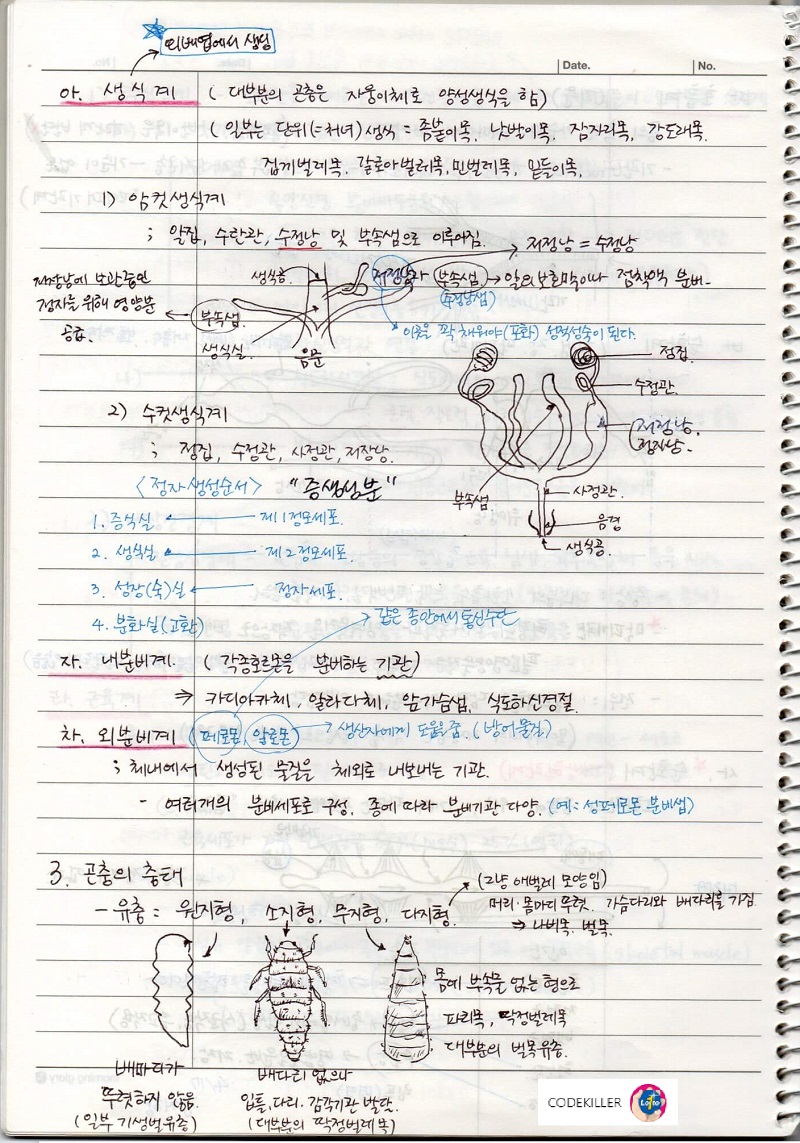 외배엽에서 생성
Date.
No.
아. 생식계 ( 대부분의 곤충은 자웅이체로 양성생식을 함)
( 일부는 단위(=처녀) 생식 = 좀붙이목, 낫발이목, 잠자리목, 강도래목,
집게벌레목, 갈로아벌레목, 민벌레목, 밑들이목.
1) 암컷생식계
; 알집, 수란관, 수정낭 및 부속샘으로 이루어짐.
저정낭 = 수정낭
저장낭에 보관중인
정자를 위해 영양분
공급.
부속샘.
생식공.
생식실.
음문
저정낭과 부속샘 → 알의 보호막이나 점착액 분비.
(수정낭샘)
이곳을 꽉 채워야 (포화) 성적성숙이 된다.
정집.
수정관.
저정낭.
정자낭.
부속샘
사정관.
음경
생식공.
2) 수컷생식계
; 정집, 수정관, 사정관, 저장낭.
<정자 생성순서> "증생성분"
1. 증식실 ← 제1정모세포.
2. 생식실 ← 제2정모세포.
3. 성장(숙)실 ← 정자세포.
4. 분화실(고환)
같은 종안에서 통신수단
자. 내분비계 ( 각종호르몬을 분비하는 기관)
⇒ 카디아카체, 알라다체, 앞가슴샘, 식도하신경절.
차. 외분비계 (페로몬, 알로몬) → 생산자에게 도움을 줌. (방어물질)
; 체내에서 생성된 물질을 체외로 내보내는 기관.
- 여러개의 분비세포로 구성, 종에 따라 분비기관 다양. (예: 성페로몬 분비샘)
3. 곤충의 충태
- 유충 = 원지형, 소지형, 무지형, 다지형.
(그냥 애벌레 모양임)
머리·몸마디 뚜렷. 가슴다리와 배다리를 가짐
⇒ 나비목, 벌목.
몸에 부속물 없는 형으로
파리목, 딱정벌레목
대부분의 벌목유충.
배마디가
뚜렷하지 않음.
(일부 기생벌유충)
배다리 없으나
입틀, 다리, 감각기관 발달.
(대부분의 딱정벌레목)
CODEKILLER